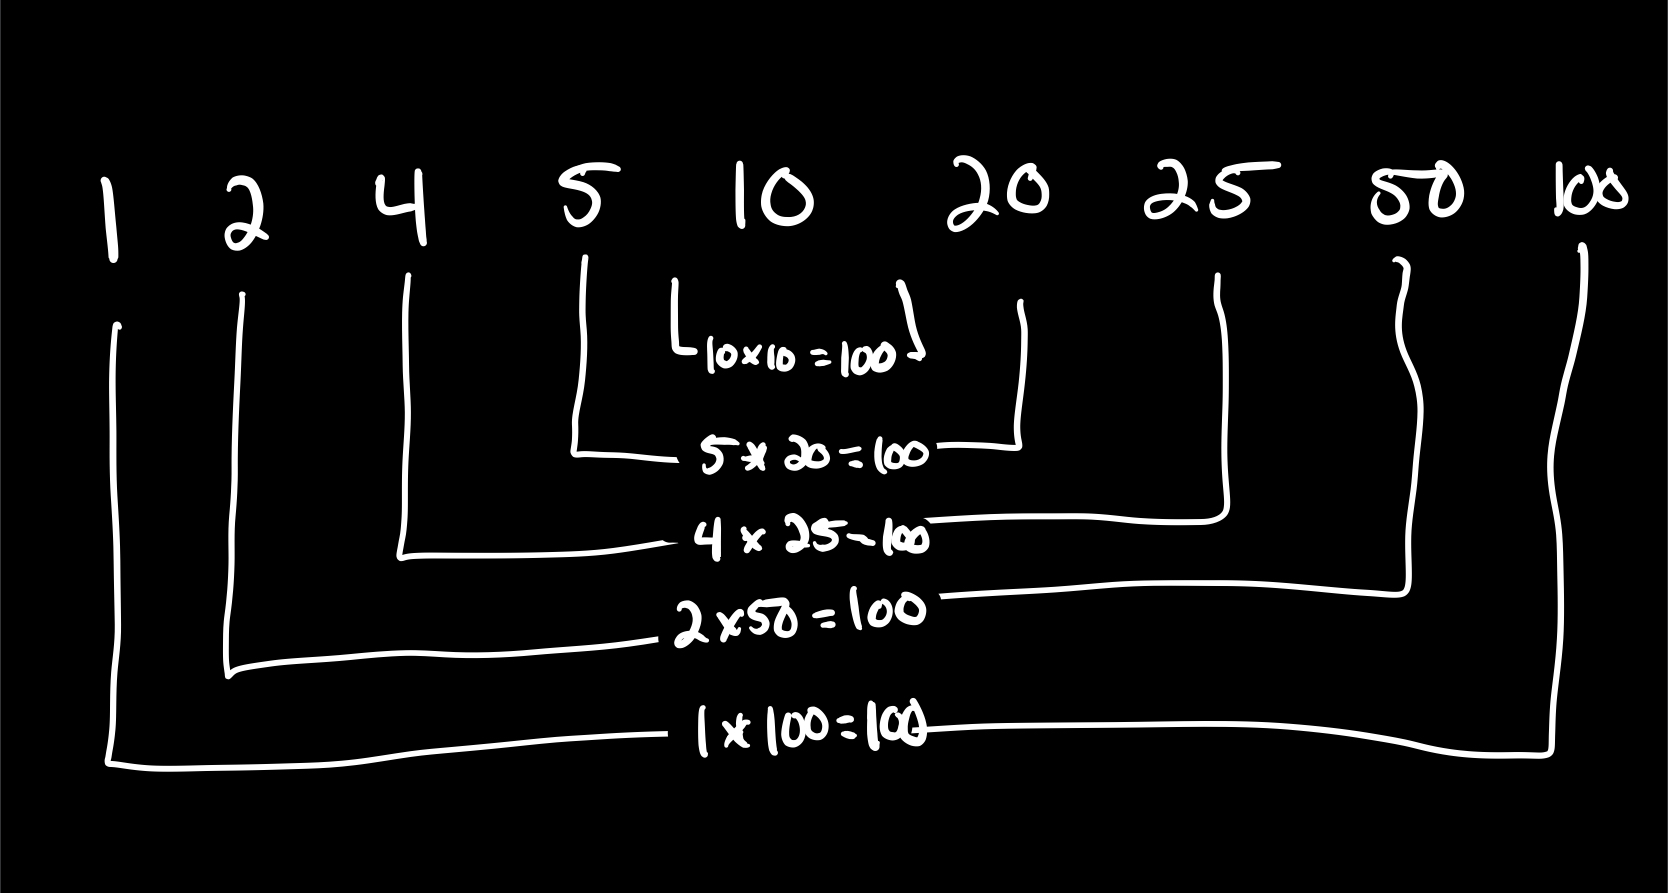 1 2 4 5 10 20 25 50 100
10 x 10 = 100
5 x 20 = 100
4 x 25 - 100
2 x 50 = 100
1 x 100 = 100